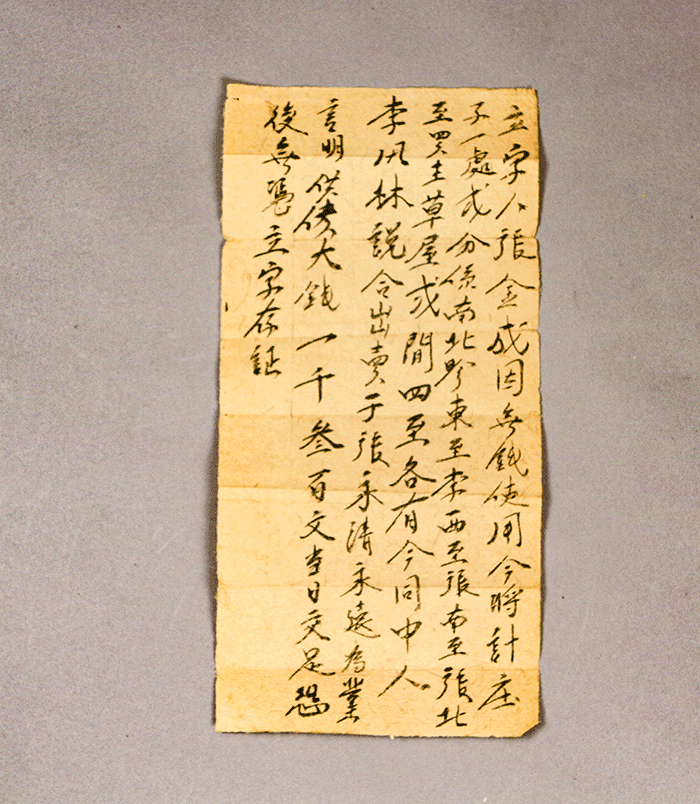 立字人張金成因無錢使用今將計庄
子一處弍分係南北畛東至李西至張南至張北
至買主草屋弍間四至各有今同中人
李風林說合出賣于張永清永遠為業
言明供價大錢一千叄百文当日交足恐
後無憑立字存証